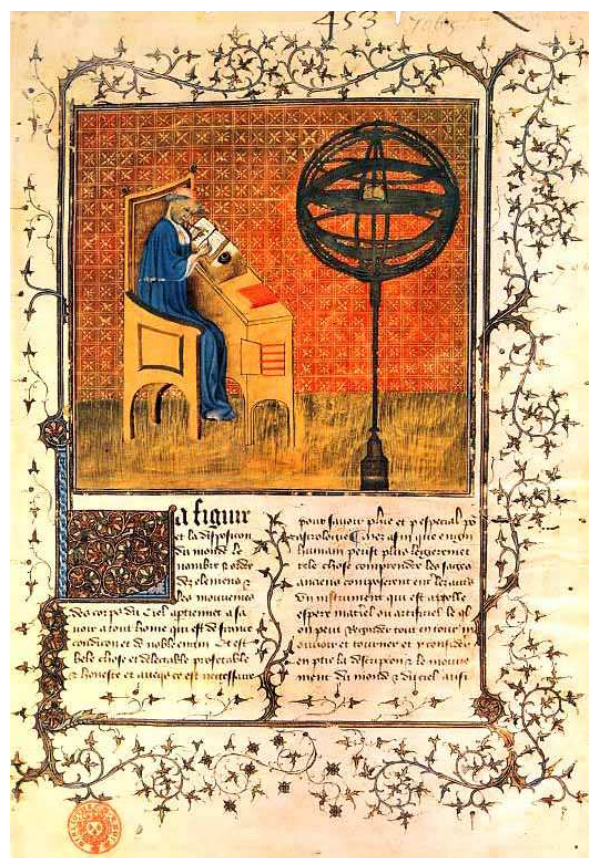 453 7065
La figure
et la disposicon
du monde le
nombre & ordr
dez elemens &
les mouvemens
des corps du ciel aptiennet a sa
voir a tout home qui est de franc
condicon et de noble engin Et est
bele chose et delectable profetable
& honeste et avecques ce est necessaire
pour savoir phie et p especial p
astrologie Et por ce afin que engin
humain peust plus legierement
tele chose comprendre les sages
anciens composerent entre les aut
Un instrument qui est apelle
espere materiel ou artificiel le quel
on peut regarder tout en tour m
ouvoir et tourner et y considerer
en ptie la descripcon & le mouve
ment du monde & du ciel aussi